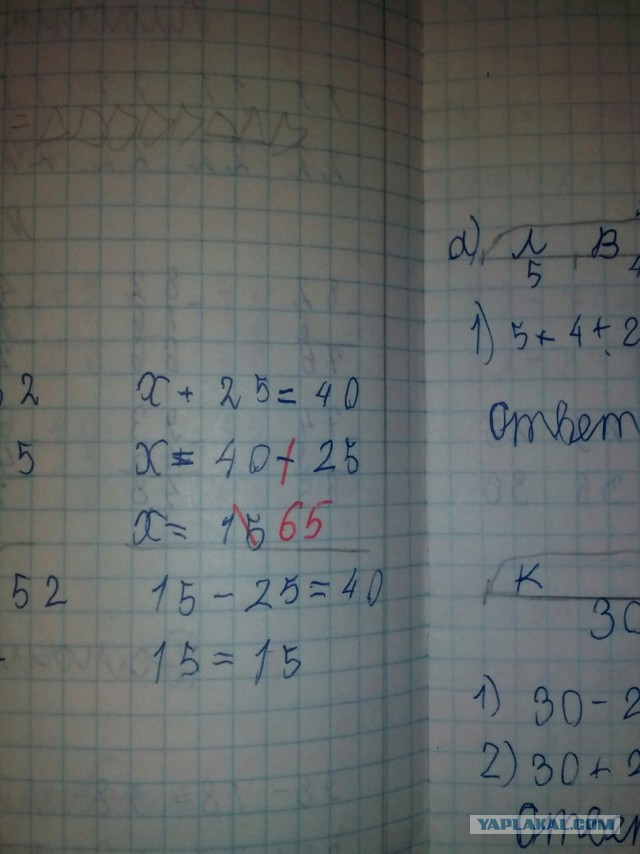 2
5
52
x + 25 = 40
x = 40 + 25
x = 15 65
15 - 25 = 40
15 = 15
а) Л В
5 4
1) 5 + 4 + 2
Ответ
К
30
1) 30 - 2
2) 30 + 2
Ответ
YAPLAKAL.COM